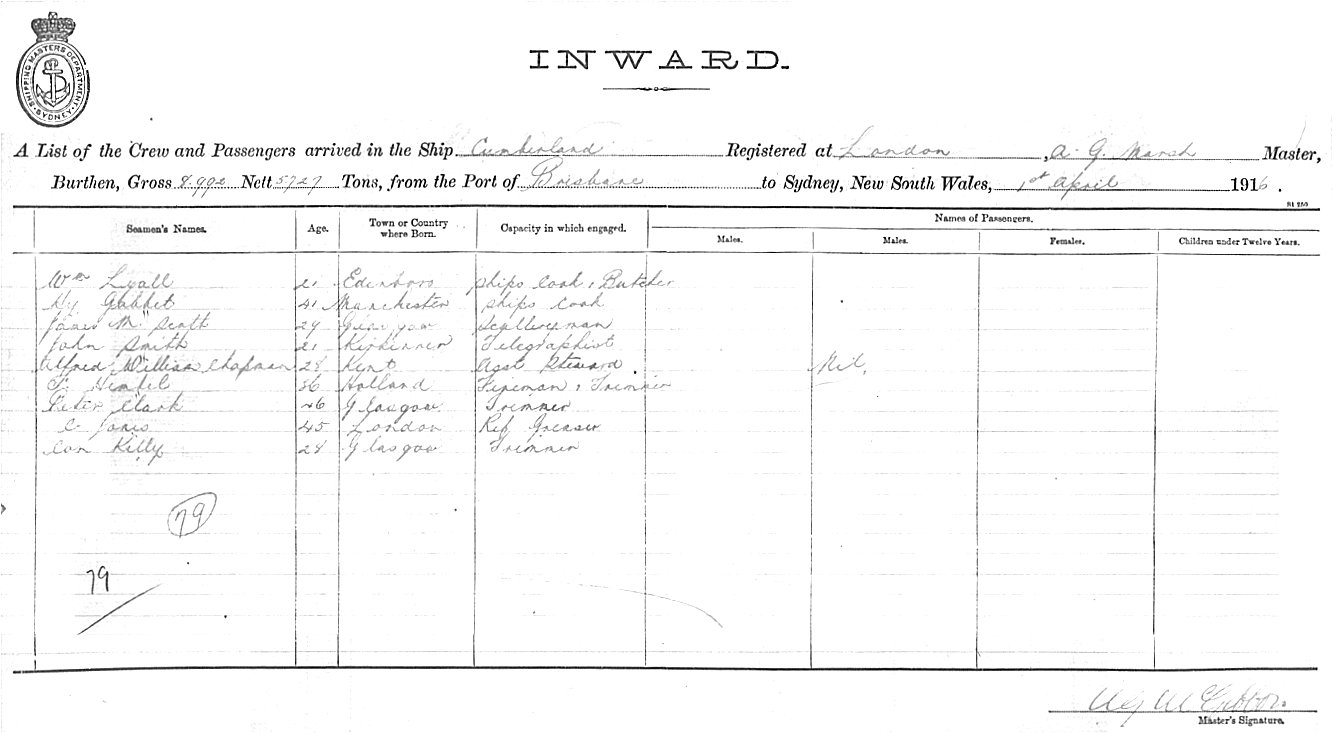 SHIPPING MASTERS DEPARTMENT. SYDNEY
INWARD.
A List of the Crew and Passengers arrived in the Ship Cumberland Registered at London, A. G. Marsh Master,
Burthen, Gross 8.992 Nett 5727 Tons, from the Port of Brisbane to Sydney, New South Wales, 1st April 1916.
Seamen's Names. Age. Town or Country where Born. Capacity in which engaged. Names of Passengers.
Males. Males. Females. Children under Twelve Years.
Wm Lyall 21 Edinboro Ships Cook & Butcher
Hy Gabbet 41 Manchester Ships Cook
James M. Scott 29 Glasgow Sculleryman
John Smith 21 Kirkinner Telegraphist
Alfred William Chapman 28 Kent Asst Steward Nil
36 Holland Fireman & Trimmer
Peter Clark 26 Glasgow Trimmer
C Jones 45 London Ref Greaser
Con Killy 28 Glasgow Trimmer
79
79
Master's Signature.